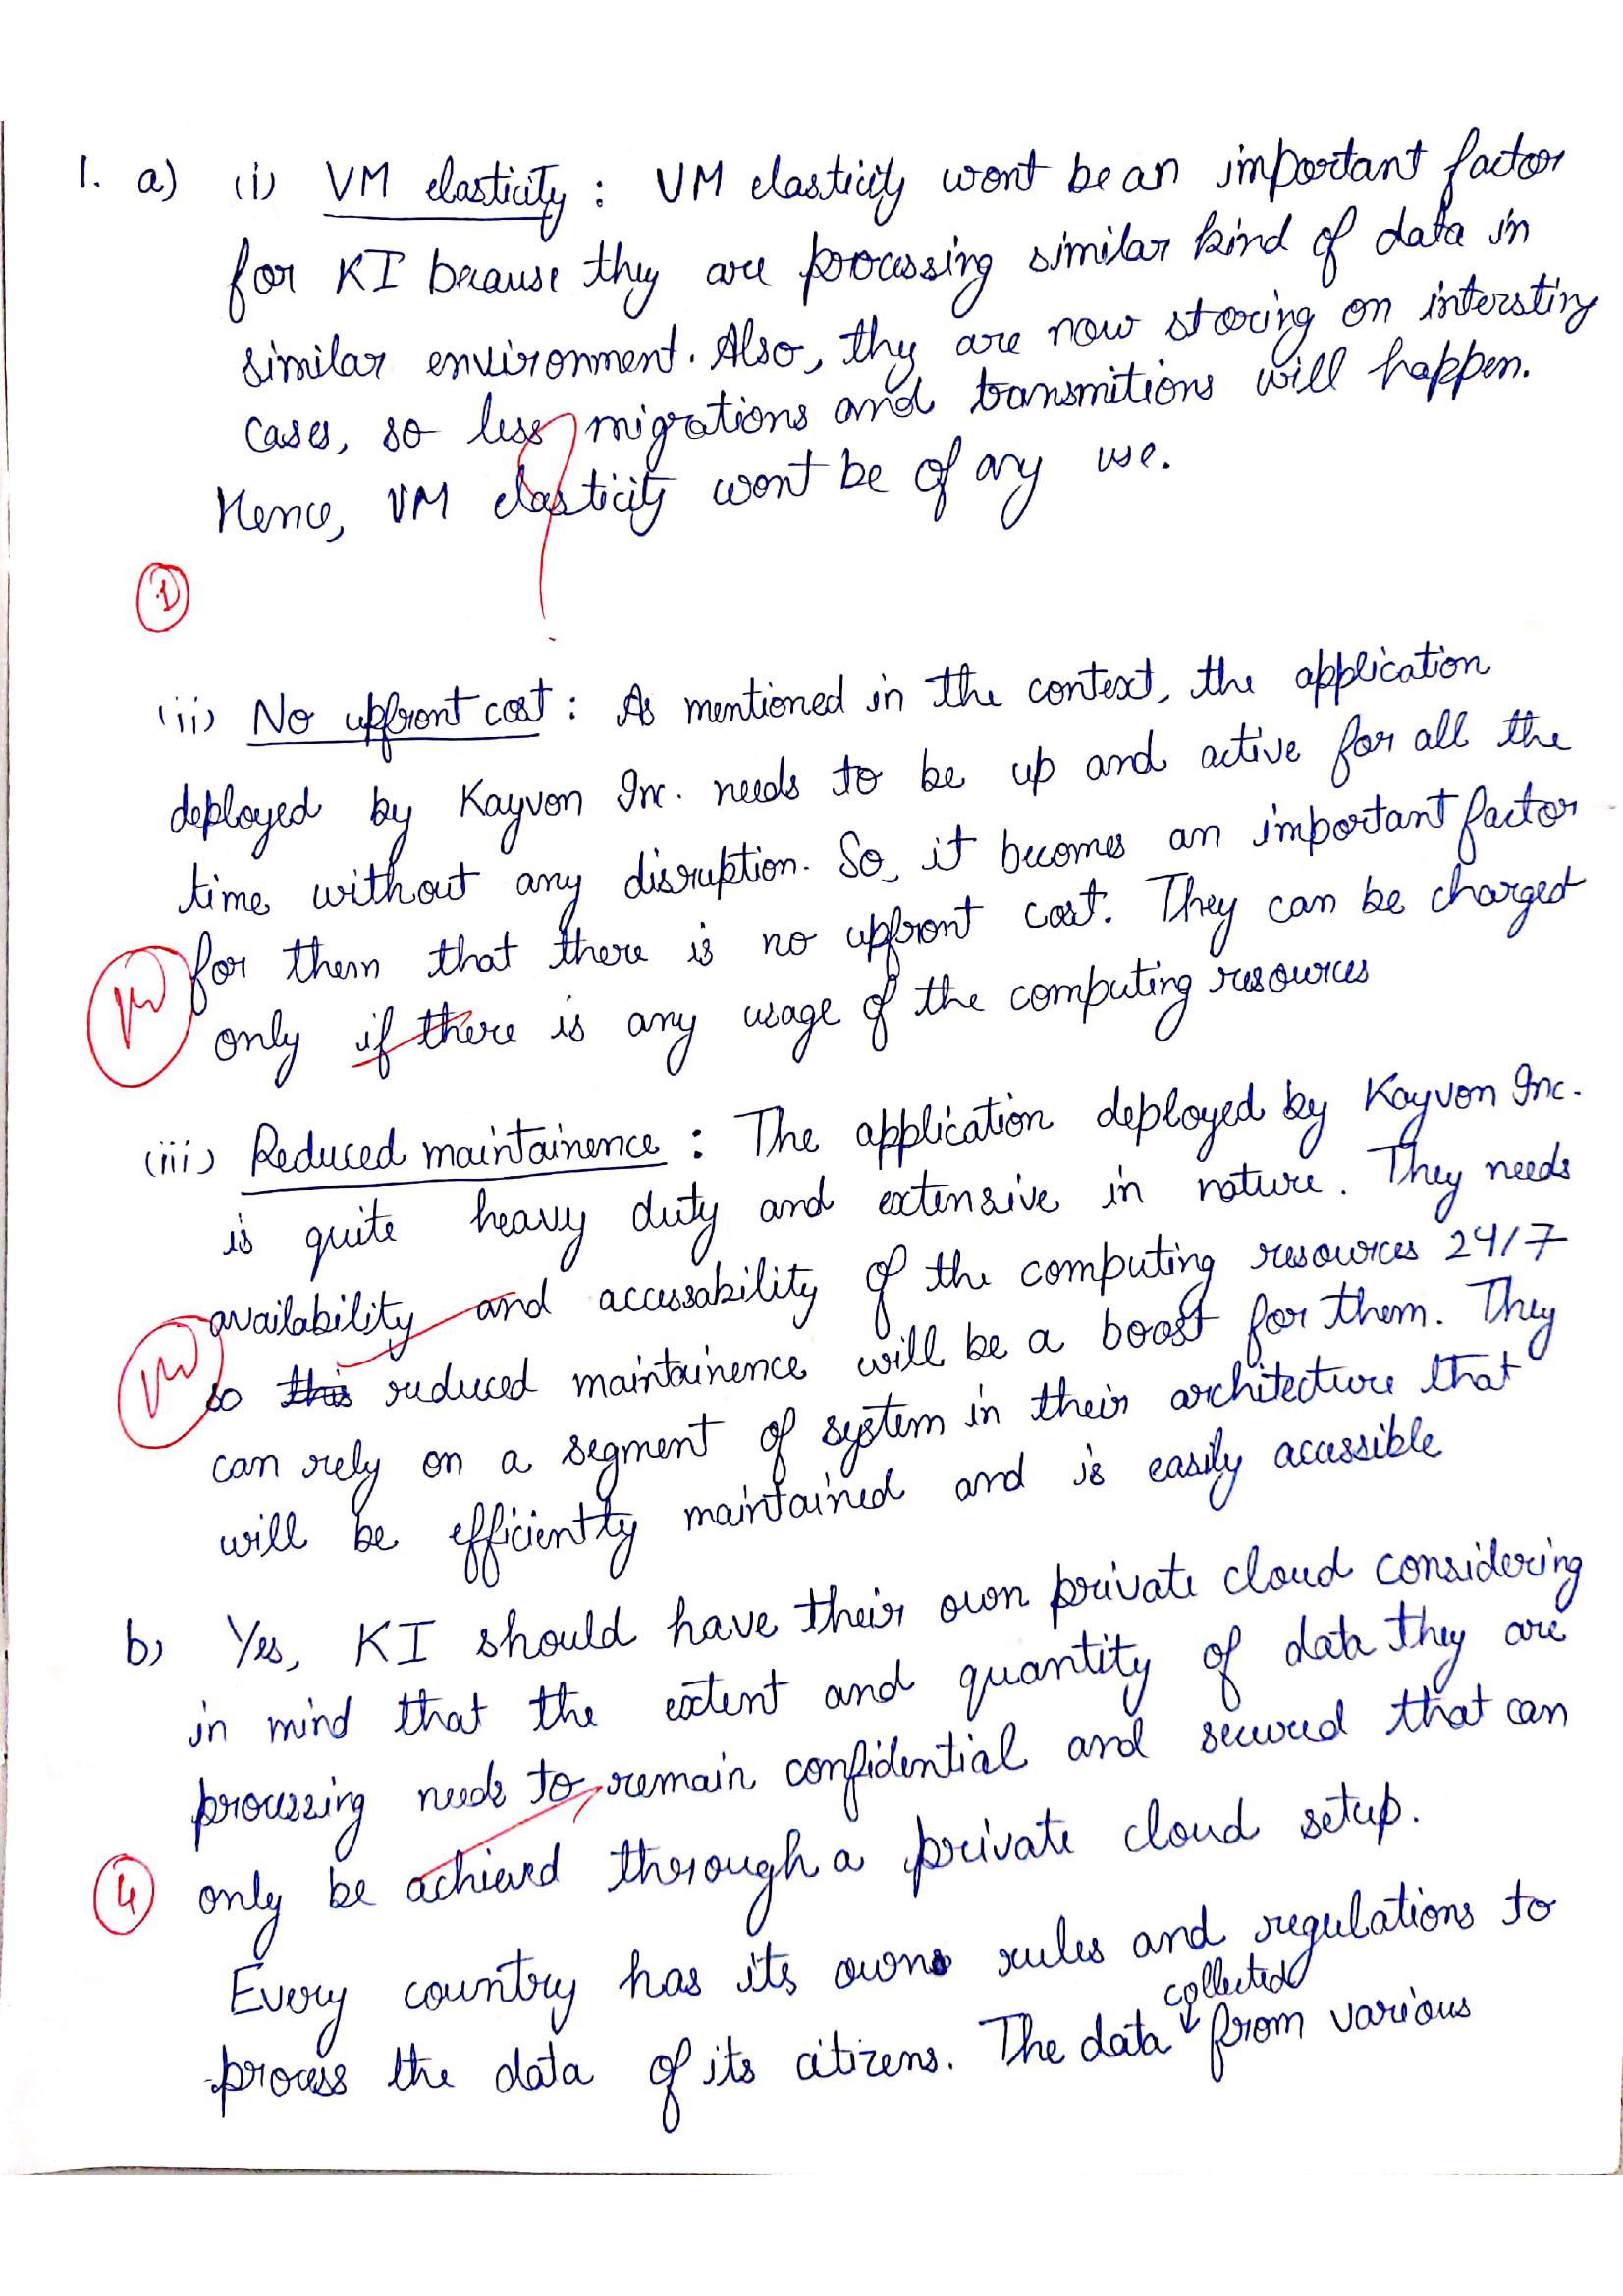 1. a) (i) VM elasticity : VM elasticity wont be an important factor
for KI because they are processing similar kind of data in
similar environment. Also, they are now storing on intersting
cases, so less migrations and transmitions will happen.
Hence, VM elasticity wont be of any use.
1
(ii) No upfront cost : As mentioned in the context, the application
deployed by Kayvon Inc. needs to be up and active for all the
time without any disruption. So, it becomes an important factor
for them that there is no upfront cost. They can be charged
only if there is any usage of the computing resources
(iii) Reduced maintainence : The application deployed by Kayvon Inc.
is quite heavy duty and extensive in nature. They needs
availability and accessability of the computing resources 24/7
so this reduced maintainence will be a boost for them. They
can rely on a segment of system in their architecture that
will be efficiently maintained and is easily accessible
b) Yes, KI should have their own private cloud considering
in mind that the extent and quantity of data they are
processing needs to remain confidential and secured that can
4 only be achieved through a private cloud setup.
Every country has its owns rules and regulations to
process the data of its citizens. The data collected from various